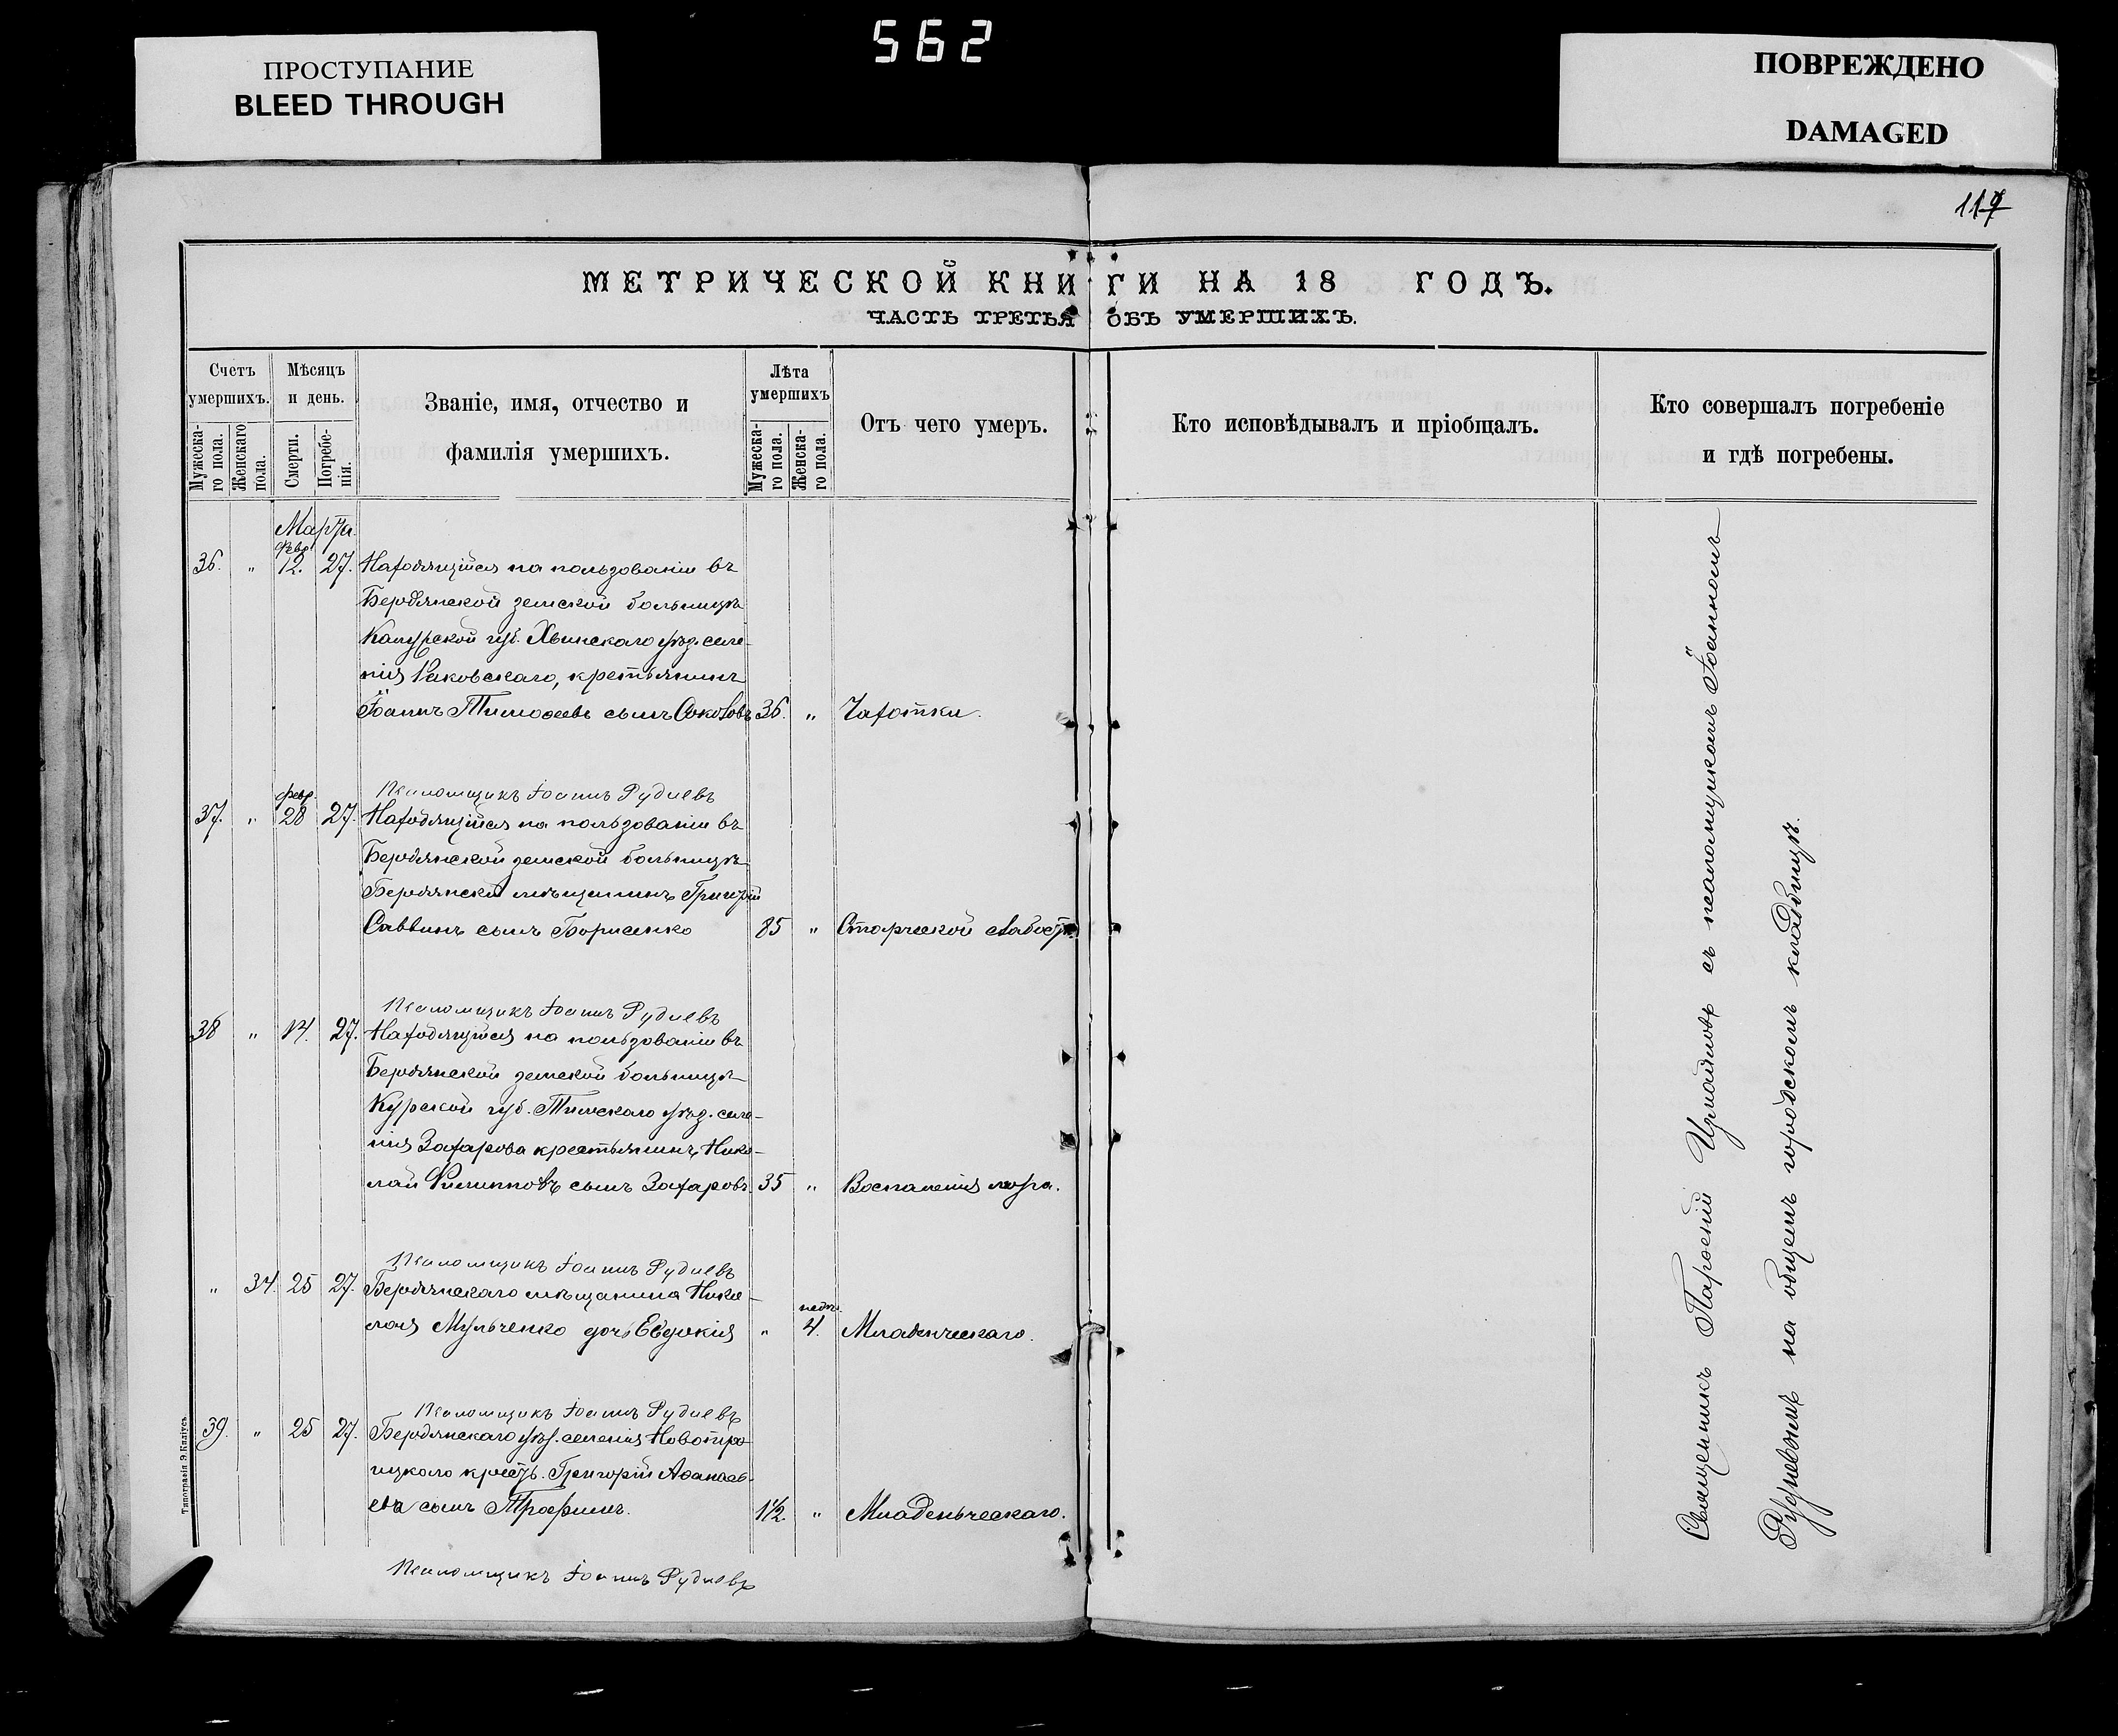 562
ПРОСТУПАНИЕ
BLEED THROUGH
ПОВРЕЖДЕНО
DAMAGED
МЕТРИЧЕСКОЙ КНИГИ НА 18 ГОДЪ.
ЧАСТЬ ТРЕТЬЯ ОБЪ УМЕРШИХЪ.
Счетъ умершихъ.
Мужеска-го пола.
Женскаго пола.
Мѣсяцъ и день.
Смерти.
Погребе-нія.
Званіе, имя, отчество и
фамилія умершихъ.
Лѣта умершихъ
Мужеска-го пола.
Женска-го пола.
Отъ чего умеръ.
Кто исповѣдывалъ и пріобщалъ.
Кто совершалъ погребеніе
и гдѣ погребены.
Марта.
февр.
36. " 12. 27. Находящійся на пользованіи въ
Бердянской земской больницѣ
губ. уѣз. селе-
нія Раковскаго, крестьянинъ
Іоаннъ Тимоѳеевъ сынъ Соколовъ 36. " Чахотки.
Псаломщикъ Іоаннъ Рудневъ
февр.
37. " 28 27. Находящійся на пользованіи въ
Бердянской земской больницѣ
Бердянскій мѣщанинъ Григорій
Саввинъ сынъ Борисенко 85 " Старческой слабости
Псаломщикъ Іоаннъ Рудневъ
38 " 14. 27. Находящійся на пользованіи въ
Бердянской земской больницѣ
Курской губ. Тимскаго уѣзд. селе-
нія Захарова крестьянинъ Нико-
лай Филипповъ сынъ Захаровъ 35 " Воспаленія
Псаломщикъ Іоаннъ Рудневъ
" 34. 25 27. Бердянскаго мѣщанина Нико-
лая Мульченко дочь Евдокія " недѣ. 4. Младенческаго.
Псаломщикъ Іоаннъ Рудневъ
39. " 25 27. Бердянскаго уѣз. селенія Новотро-
ицкаго крест. Григорій Аѳанась-
евъ сынъ Трофим. 1½. " Младенческаго.
Псаломщикъ Іоаннъ Рудневъ
Священникъ Парѳеній Измайловъ съ псаломщикомъ Іоанномъ
Рудневымъ на общемъ городскомъ кладбищѣ.
Типографія Э. Килі́усъ